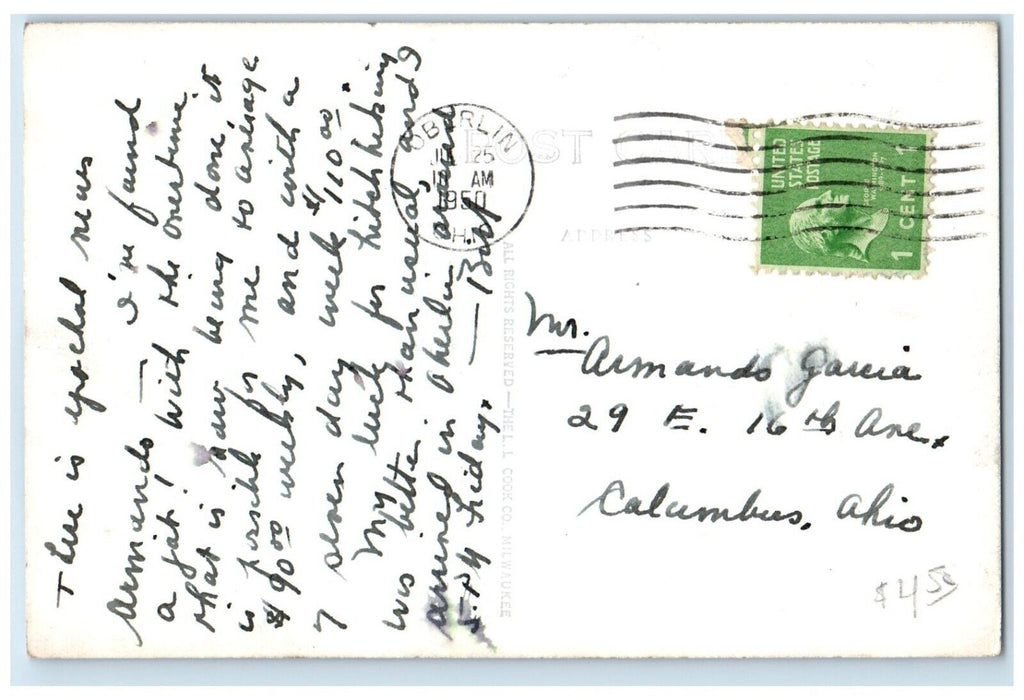 Here is epochal news
Armando — I've found
a job! With the overtime
that is now being done, it
is possible for me to average
$90.00 weekly, and with a
7 seven day week $110.00.
My luck for hitch hiking
was better than usual, and I
arrived in Oberlin around
5 P.M. Friday. — Bill
ALL RIGHTS RESERVED — THE L. L. COOK CO. MILWAUKEE
POST CARD
ADDRESS
OBERLIN
25
AM
1950
UNITED
STATES
POSTAGE
GEORGE
WASHINGTON
1 CENT 1
Mr.
Armando Garcia
29 E. 16th Ave.,
Columbus, Ohio
$4.50